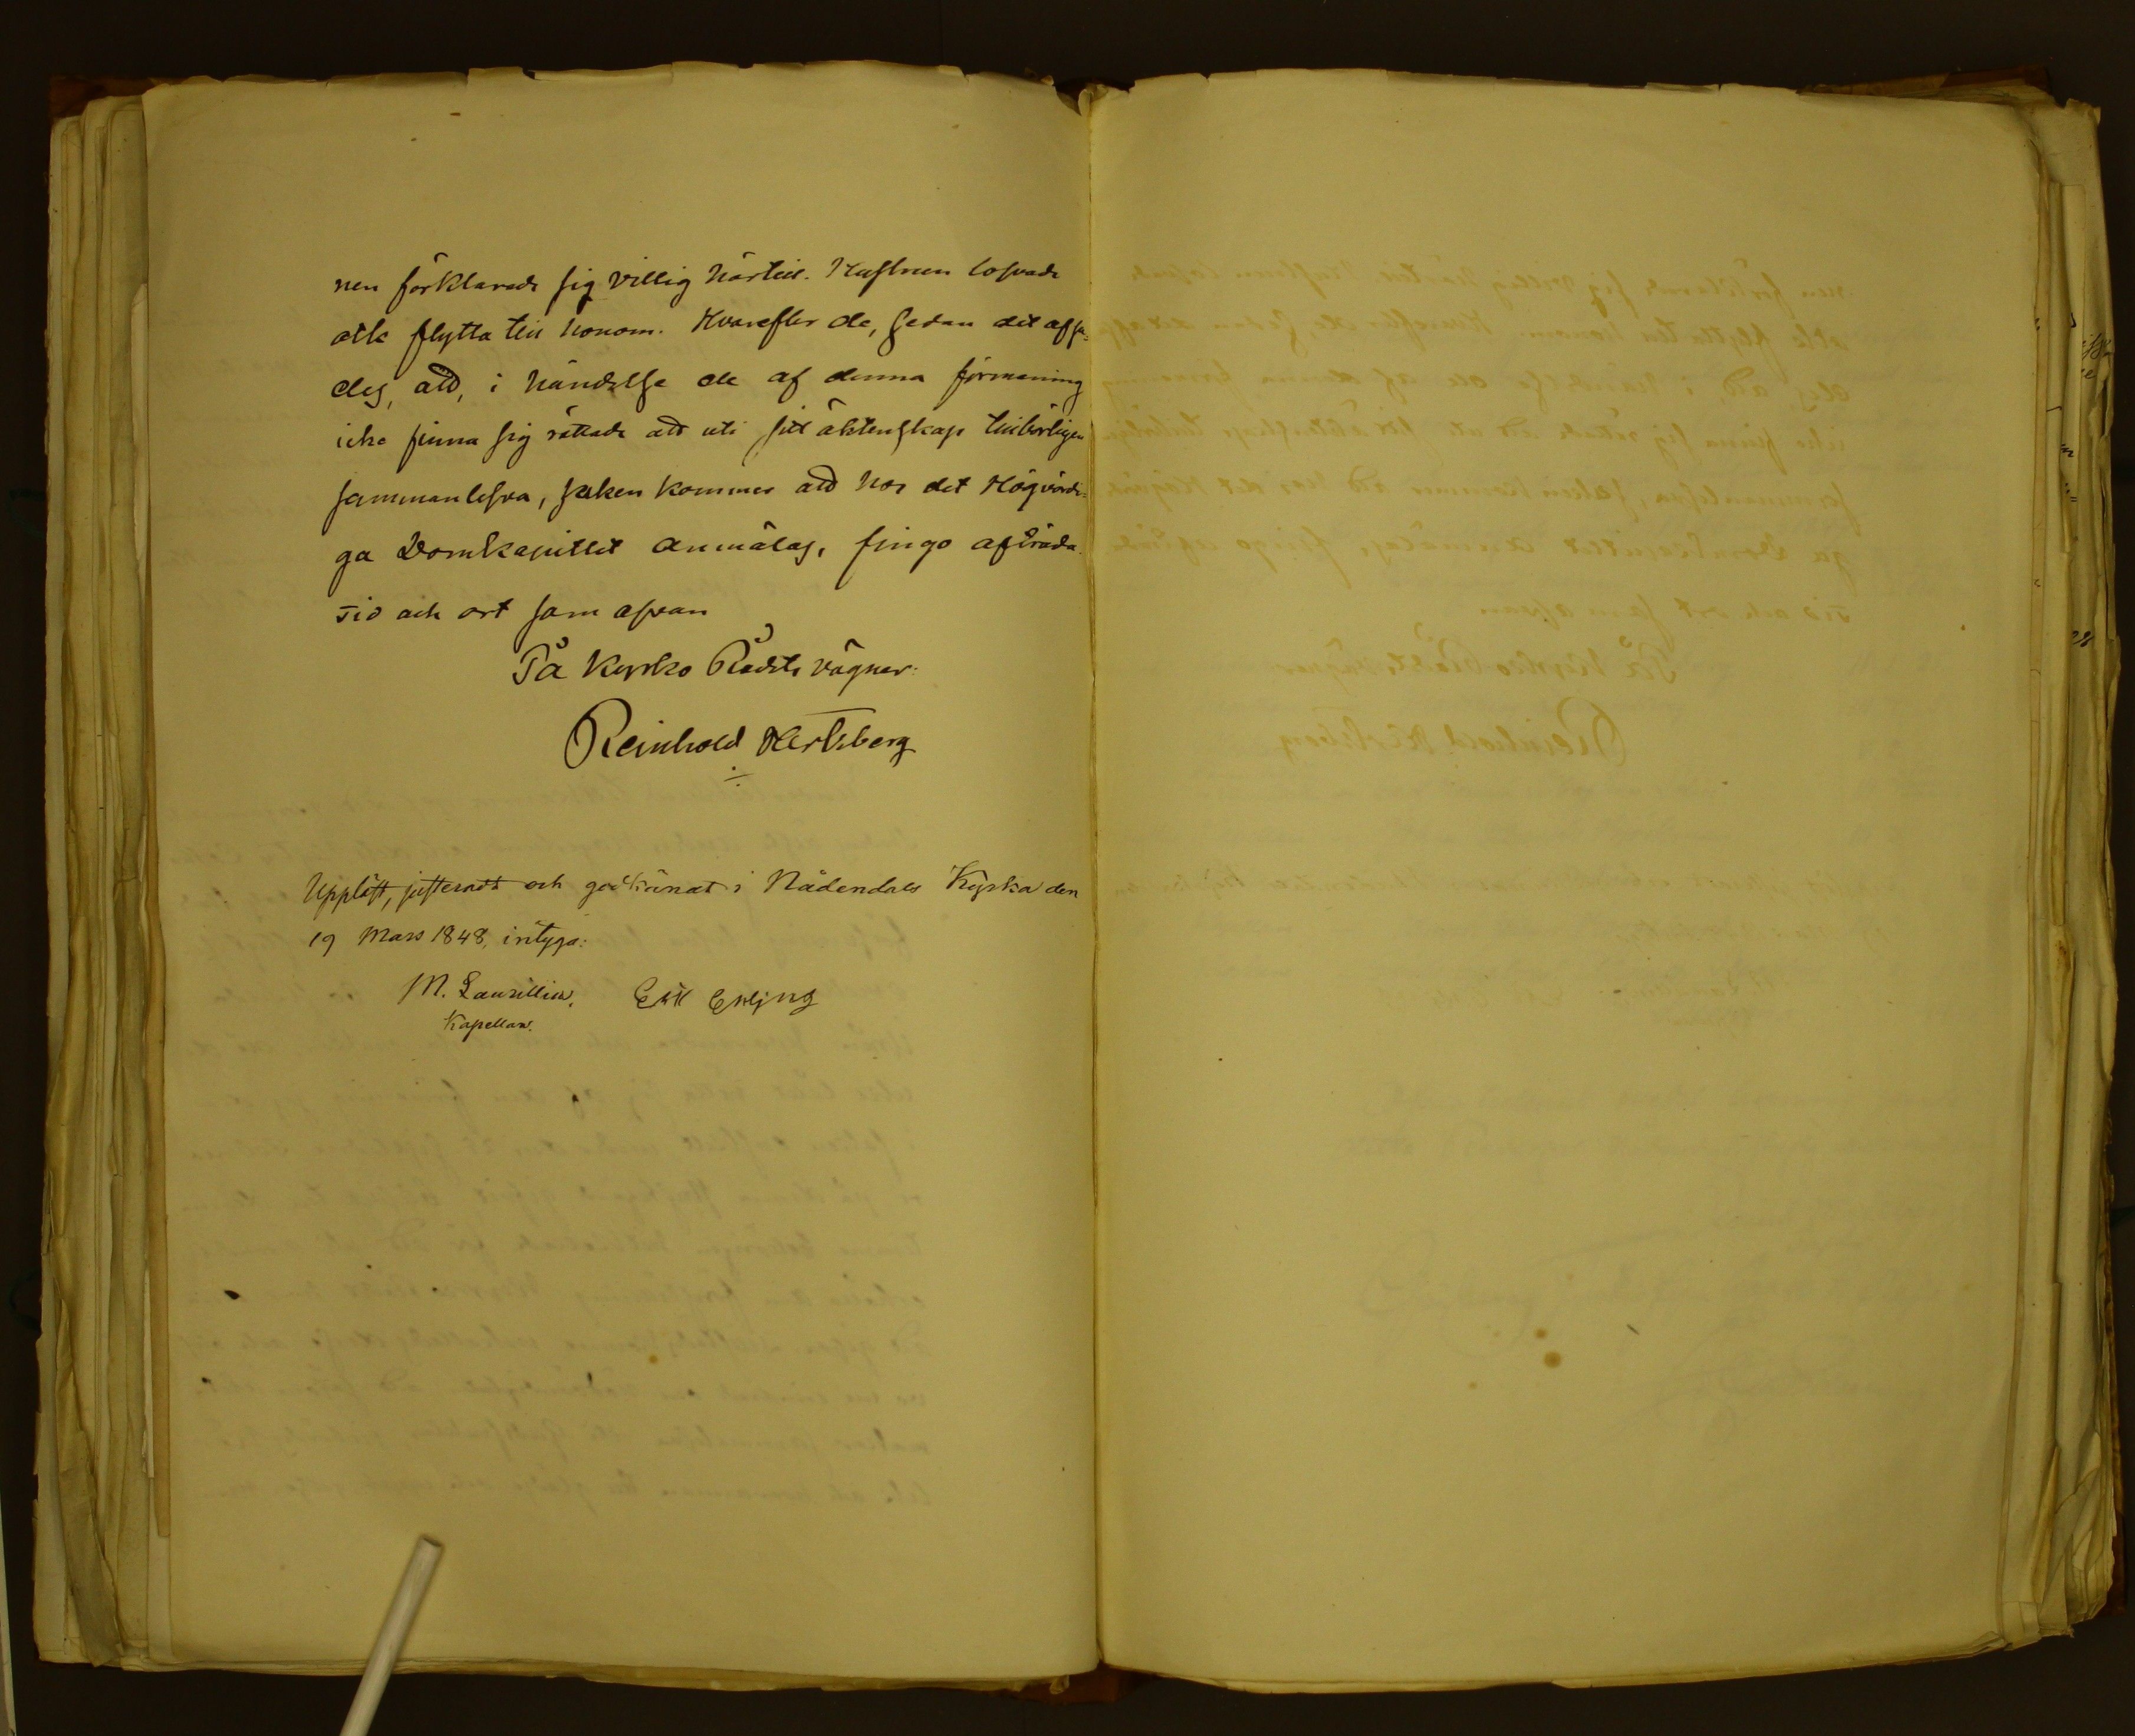 nen förklarade sig villig härtill. Hustrun lofvade
åtlc flytta till honom. Hvarefter de, sedan det afsa-
des, att, i händelse de af denna förmaning
icke finna sig rättade att uti sitt äktenskap tillbörligen
sammanlefva, saken kommer att hos det Högvördi-
ga Domkapitlet anmälas, fingo afträda.
Tid och ort som ofvan
På Kyrko Rådets vägnar:
Reinhold Hertzberg
Uppläst, justeradt och godkänat i Nådendals Kyrka den
19 Mars 1848, intyga:
M. Laurillin. Erik Ekljng
Kapellan.